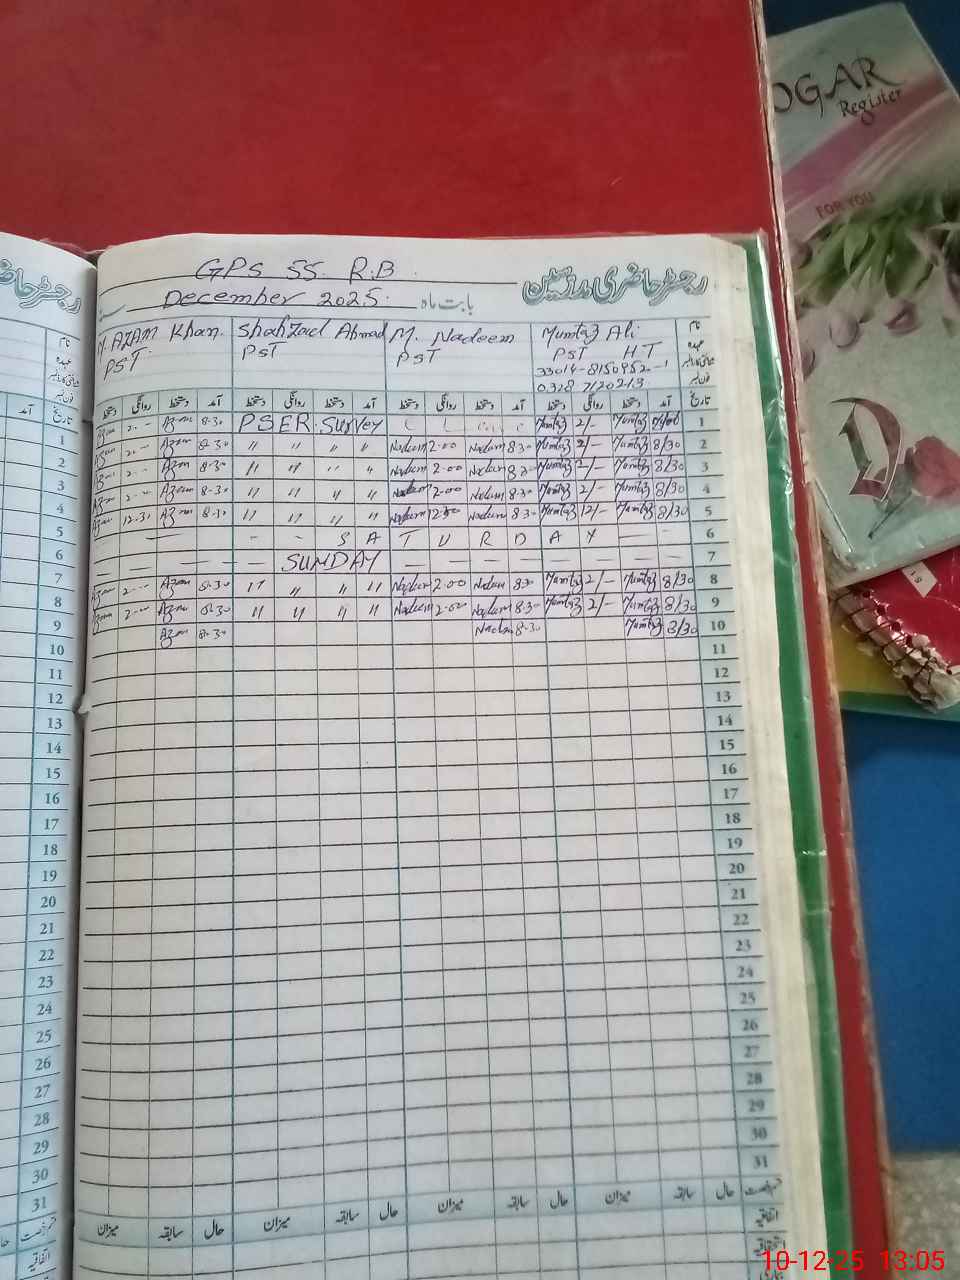 OGAR
Register
FOR YOU
D
GPS 55 R.B
رجسٹر حاضری مدرسین
December 2025 بابت ماہ
M. AZAM Khan. Shahzad Ahmad M. Nadeem Mumtaz Ali نام
PST PST PST PST HT عہدہ
33014-8150952-1
فون نمبر
دستخط روانگی دستخط آمد دستخط روانگی دستخط آمد دستخط روانگی دستخط آمد دستخط روانگی دستخط آمد تاریخ
Azam 2-- Azam 8-30 PSER Survey Mumtaz 2/- Mumtaz 1
Azam 2-- Azam 8-30 " " " " Nadeem 2-00 Nadeem 8-30 Mumtaz 2/- Mumtaz 8/30 2
Azam 2-- Azam 8-30 " " " " Nadeem 2-00 Nadeem 8-30 Mumtaz 2/- Mumtaz 8/30 3
Azam 2-- Azam 8-30 " " " " Nadeem 2-00 Nadeem 8-30 Mumtaz 2/- Mumtaz 8/30 4
Azam 12-30 Azam 8-30 " " " " Nadeem Nadeem 8-30 Mumtaz 12/- Mumtaz 8/30 5
— — — S A T U R D A Y — — 6
— — — — SUNDAY — — — — — — — — 7
Azam 2-- Azam 8-30 " " " " Nadeem 2-00 Nadeem 8-30 Mumtaz 2/- Mumtaz 8/30 8
Azam 2-- Azam 8-30 " " " " Nadeem 2-00 Nadeem 8-30 Mumtaz 2/- Mumtaz 8/30 9
Azam 8-30 Nadeem 8-30 Mumtaz 8/30 10
11
12
13
14
15
16
17
18
19
20
21
22
23
24
25
26
27
28
29
30
31
میزان سابقہ حال میزان سابقہ حال میزان سابقہ حال میزان سابقہ حال قسم رخصت
اتفاقیہ
استحقاقیہ
آمد
1
2
3
4
5
6
7
8
9
10
11
12
13
14
15
16
17
18
19
20
21
22
23
24
25
26
27
28
29
30
31
قسم رخصت
اتفاقیہ
10-12-25 13:05